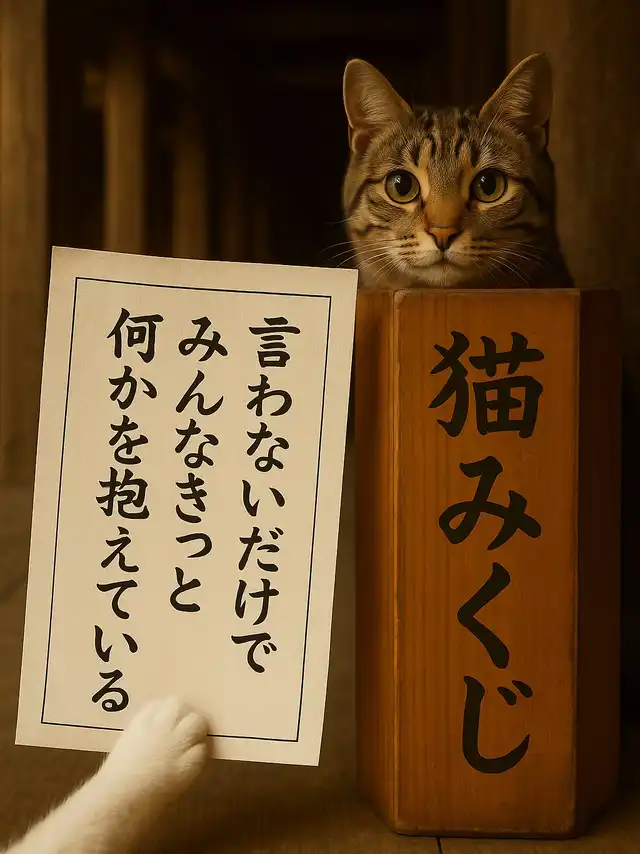 言わないだけで
みんなきっと
何かを抱えている
猫みくじ